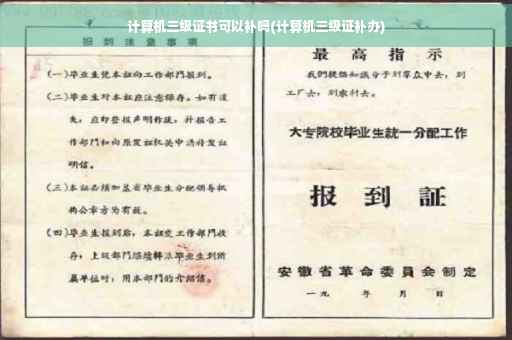 计算机三级证书可以补吗(计算机三级证补办)
报到注意事项
(一)毕业生凭本证向工作部门报到。
(二)毕业生对本证应注意保存。如有遗
失,应即登报声明作废,并报告工
作部门和向原发证机关申请补发证
明信。
(三)本证必须加盖省毕业生分配领导机
构公章方为有效。
(四)毕业生报到后,本证交工作部门收
存,上级部门继续转派毕业生到所
属单位时,用本部门的介绍信。
最高指示
我们提倡知识分子到群众中去,到
工厂去,到农村去。
大专院校毕业生統一分配工作
报到証
安徽省革命委員会制定
一九 年 月 日